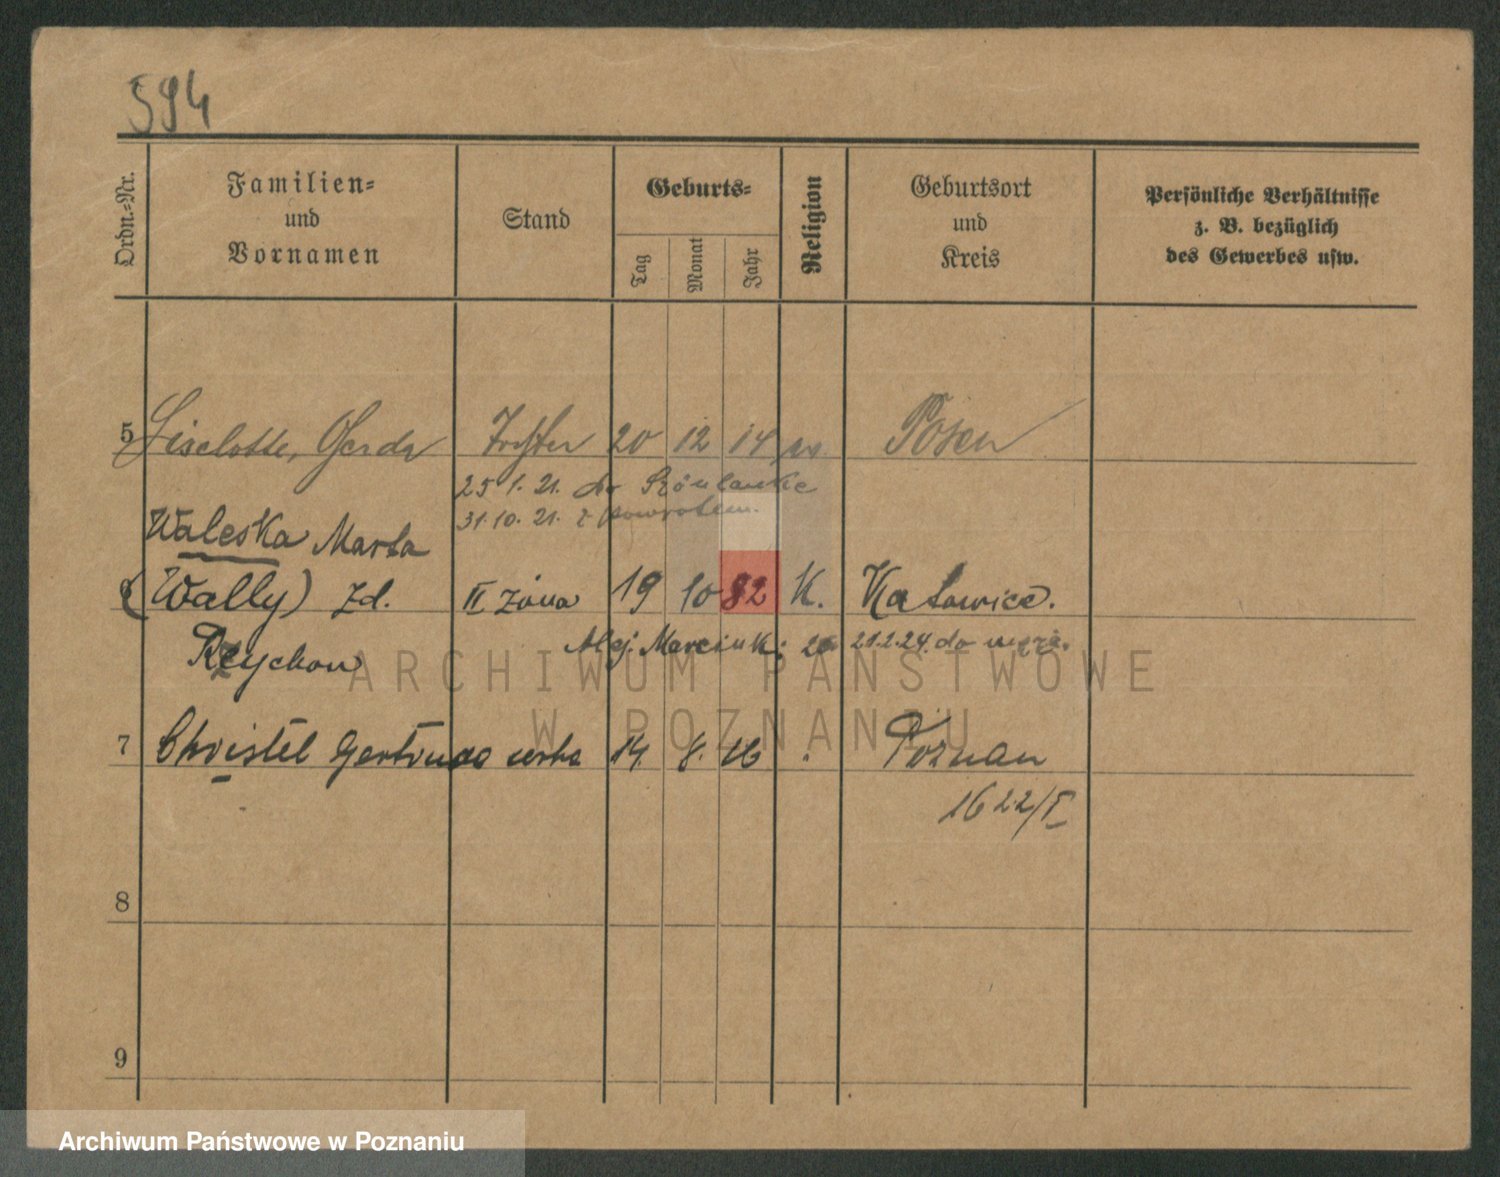 594
Ordn.-Nr.
Familien-
und
Vornamen
Stand
Geburts-
Tag
Monat
Jahr
Religion
Geburtsort
und
Kreis
Persönliche Verhältnisse
z. B. bezüglich
des Gewerbes usw.
5 Liselotte, Gerda Tochter 20 12 14 Posen
25 1. 21. do Schönlanke
31.10. 21. z powrotem.
Waleska Marta
6 (Wally) zd. II żona 19 10 82 K. Katowice.
Rzychon Alej. Marcink. 21.2.24 do męża.
7 Christel Gertruda córka 14. 8. 16 Poznan
1622/I
8
9
ARCHIWUM PAŃSTWOWE
W POZNANIU
Archiwum Państwowe w Poznaniu